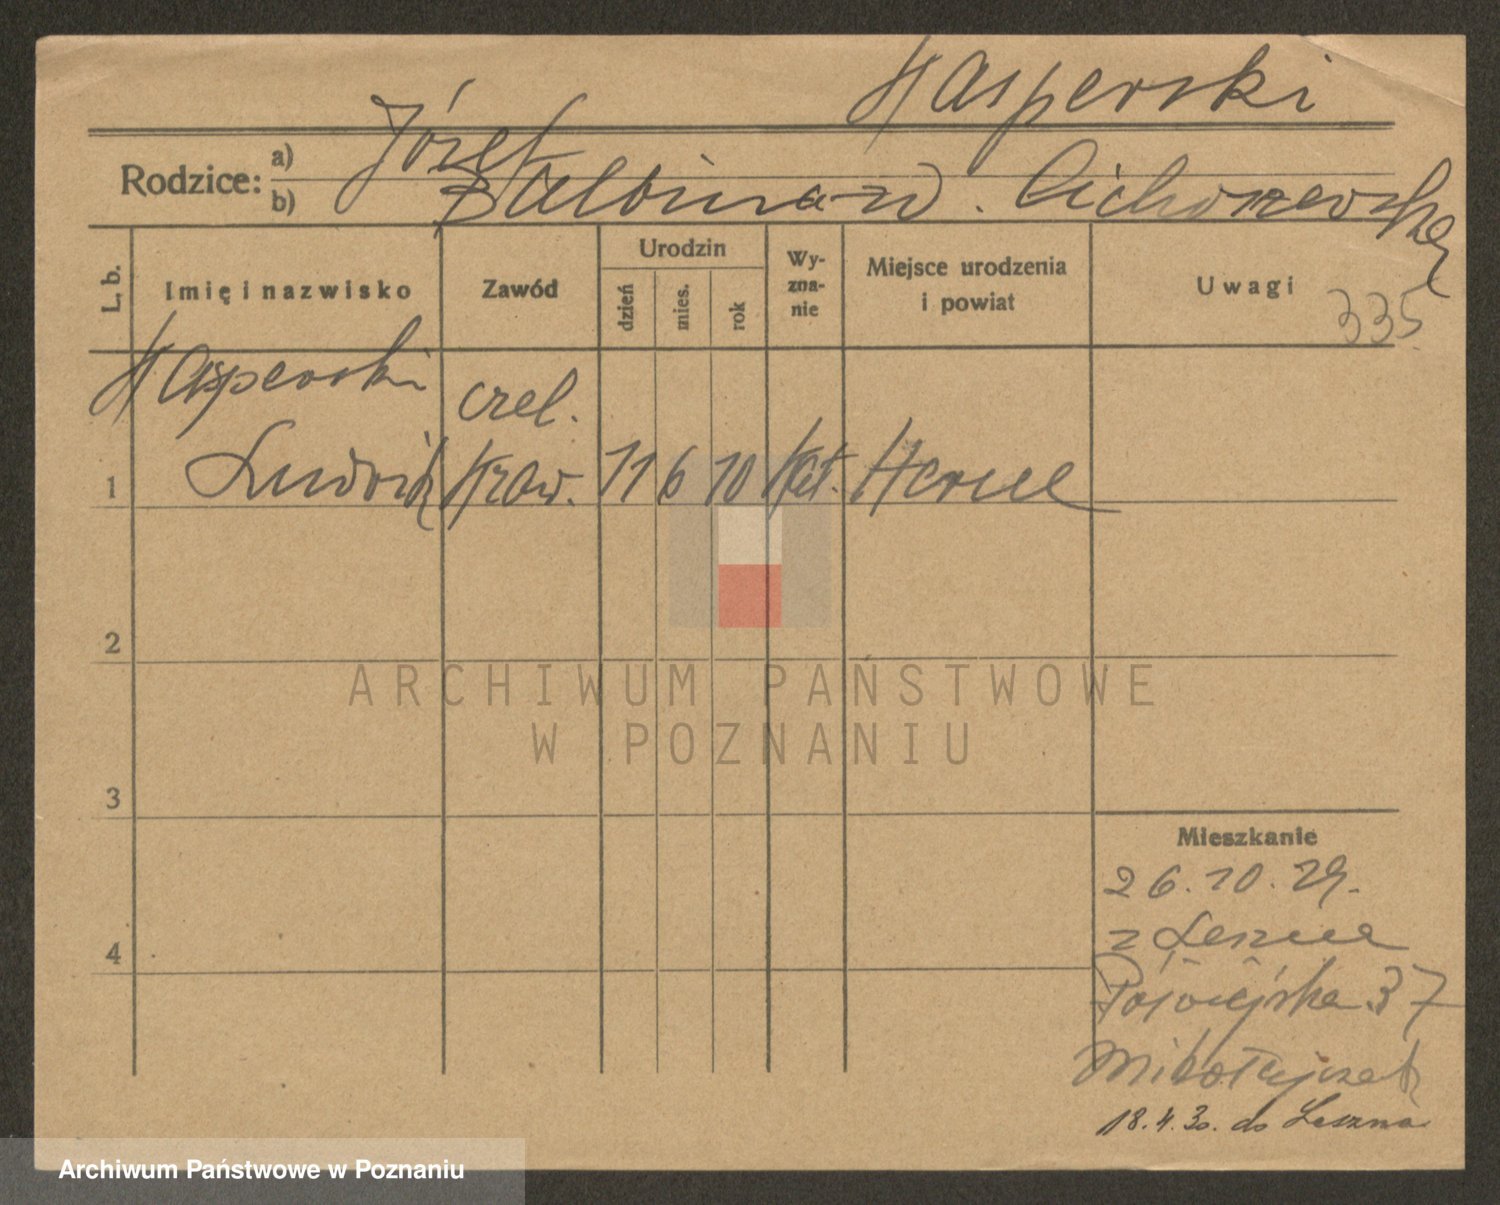 Kasperski
Rodzice: a) Józef
b) Balbina zd. Cichoszewska
L. b. Imię i nazwisko Zawód Urodzin dzień mies. rok Wyznanie Miejsce urodzenia i powiat Uwagi
335
Kasperski czel.
1 Ludwik Kraw. 11 6 10 Kat.
2
3
4
Mieszkanie
26.10.29.
37
Mikołajczak
18.4.30. do Leszna
ARCHIWUM PAŃSTWOWE
W POZNANIU
Archiwum Państwowe w Poznaniu